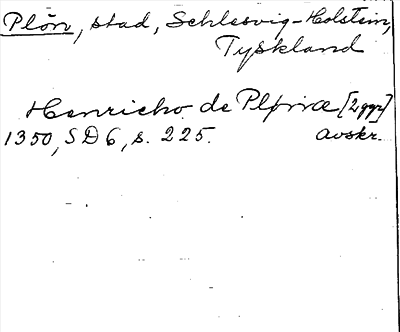 Plön, stad, Schlesvig-Holstein,
Tyskland
Henricho de Plönæ [2 ggr]
1350, SD 6, s. 225. avskr.